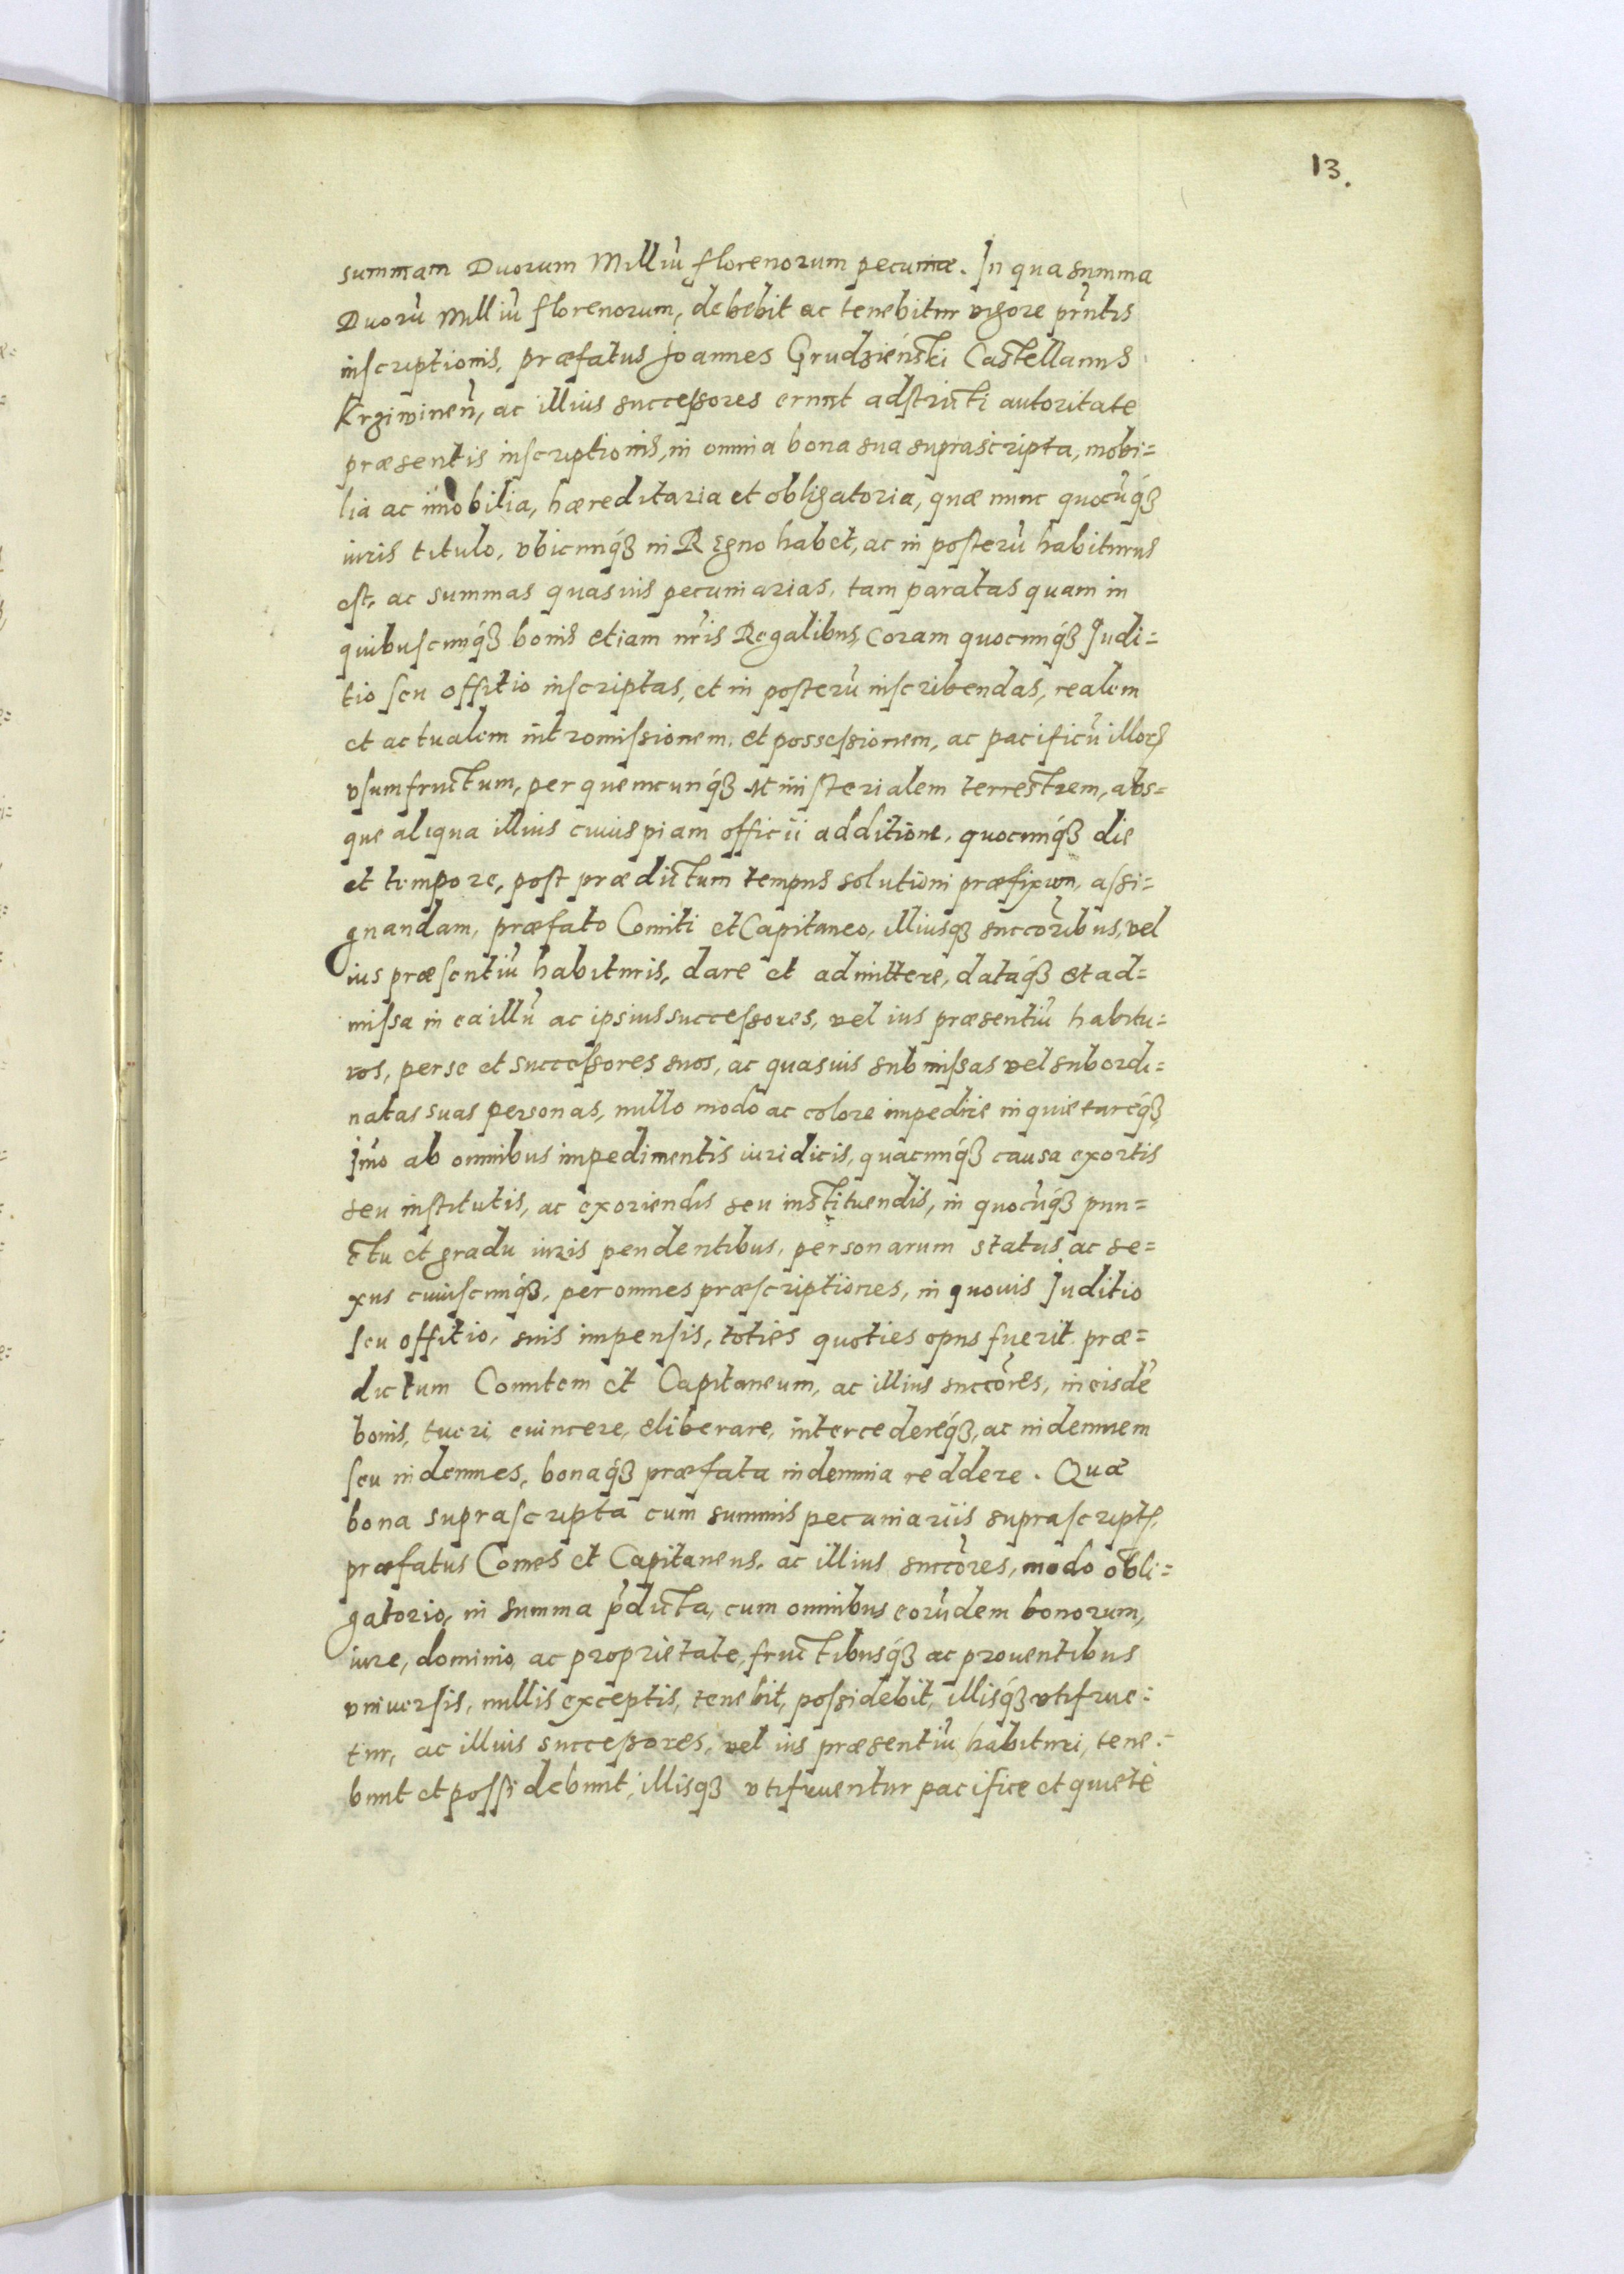 13.
summam Duorum Milliũ florenorum pecuniæ. In qua summa
Duorũ Milliũ florenorum, debebit ac tenebitur vigore pñtis
inscriptionis, præfatus Joannes Grudzieński Castellanus
Krziwineñ, ac illius successores erunt adstricti autoritate
præsentis inscriptionis, in omnia bona sua suprascripta, mobi=
lia ac im̃obilia, hæreditaria et obligatoria, quæ nunc quocũq́ꝫ
iuris titulo, vbicunq́ꝫ in Regno habet, ac in posterũ habiturus
est, ac summas quasuis pecuniarias, tam paratas quam in
quibuscunq́ꝫ bonis etiam nr̃is Regalibus, Coram quocunq́ꝫ Judi=
tio seu offitio inscriptas, et in posterũ inscribendas, realem
et actualem intromissionem, et possessionem, ac pacificũ illorꝫ
vsumfructum, per quemcunq́ꝫ Ministerialem terrestrem, abs=
que aliqua illius cuiuspiam officii additione, quocunq́ꝫ die
et tempore, post prædictum tempus solutioni præfixum, assi=
gnandam, præfato Comiti et Capitaneo, illiusqꝫ succõribus, vel
ius præsentiũ habituris, dare et admittere, dataq́ꝫ et ad=
missa in ea illũ ac ipsius successores, vel ius præsentiũ habitu=
ros, per se et successores suos, ac quasuis submissas vel subordi=
natas suas personas, nullo modo ac colore impedire inquietareq́ꝫ
Im̃o ab omnibus impedimentis iuridicis, quacunq́ꝫ causa exortis
seu institutis, ac exoriendis seu instituendis, in quocũq́ꝫ pun=
ctu et gradu iuris pendentibus, personarum status ac se=
xus cuiuscunq́ꝫ, per omnes præscriptiones, in quouis Juditio
seu offitio, suis impensis, toties quoties opus fuerit præ=
dictum Comitem et Capitaneum, ac illius succõres, in eisdẽ
bonis, tueri, euincere, eliberare, intercedereq́ꝫ, ac indemnem
seu indemnes, bonaq́ꝫ præfata indemnia reddere. Quæ
bona suprascripta cum summis pecuniariis suprascriptꝭ,
præfatus Comes et Capitaneus, ac illius succõres, modo obli=
gatorio, in summa p̃dicta, cum omnibus eorũdem bonorum,
iure, dominio, ac proprietate, fructibusq́ꝫ ac prouentibus
vniuersis, nullis exceptis, tenebit, possidebit, illisq́ꝫ vtifrue=
tur, ac illius successores, vel ius præsentiũ habituri, tene=
bunt et possidebunt, illisqꝫ vtifruentur pacifice et quietè